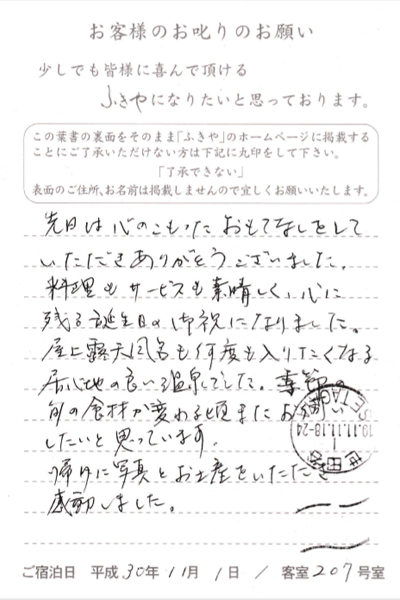 お客様のお叱りのお願い
少しでも皆様に喜んで頂ける
ふきやになりたいと思っております。
この葉書の裏面をそのまま「ふきや」のホームページに掲載する
ことにご了承いただけない方は下記に丸印をして下さい。
「了承できない」
表面のご住所、お名前は掲載しませんので宜しくお願いいたします。
先日は心のこもった おもてなしをして
いただきありがとうございました。
料理もサービスも素晴しく、心に
残る誕生日の御祝になりました。
屋上露天風呂も何度も入りたくなる
居心地の良い温泉でした。季節の
旬の食材が変わる頃またお伺い
したいと思っています。
帰りに写真とお土産をいただき
感動しました。
ご宿泊日 平成30年 11月 1日 / 客室 207 号室